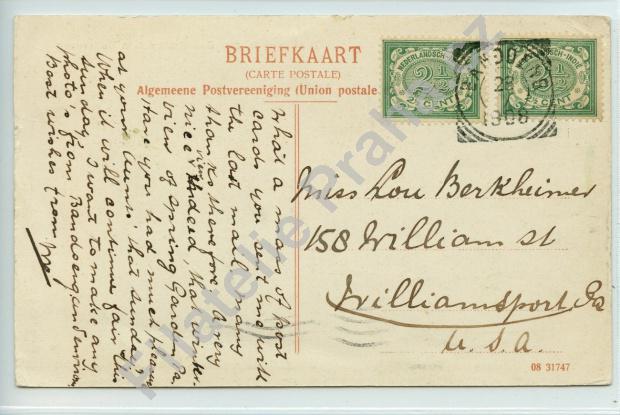 BRIEFKAART
(CARTE POSTALE)
Algemeene Postvereeniging (Union postale
NEDERLANDSCH-INDIË
2½
2½ CENT
INDIË
½ CENT
BANDOENG
1908
What a mass of post
cards you sent me with
the last mail, many
thanks therefore. A very
nice view indeed, that winter
view of Spring Garden, Pa.
Have you had much pleasure
at your Aunts' that Sunday?
When it will continue fair this
Sunday, I want to make any
photo's from Bandoeng
Best wishes from
Miss Lou Berkheimer
158 William st
Williamsport, Pa
U.S.A.
08 31747
Filatelie Praha.cz